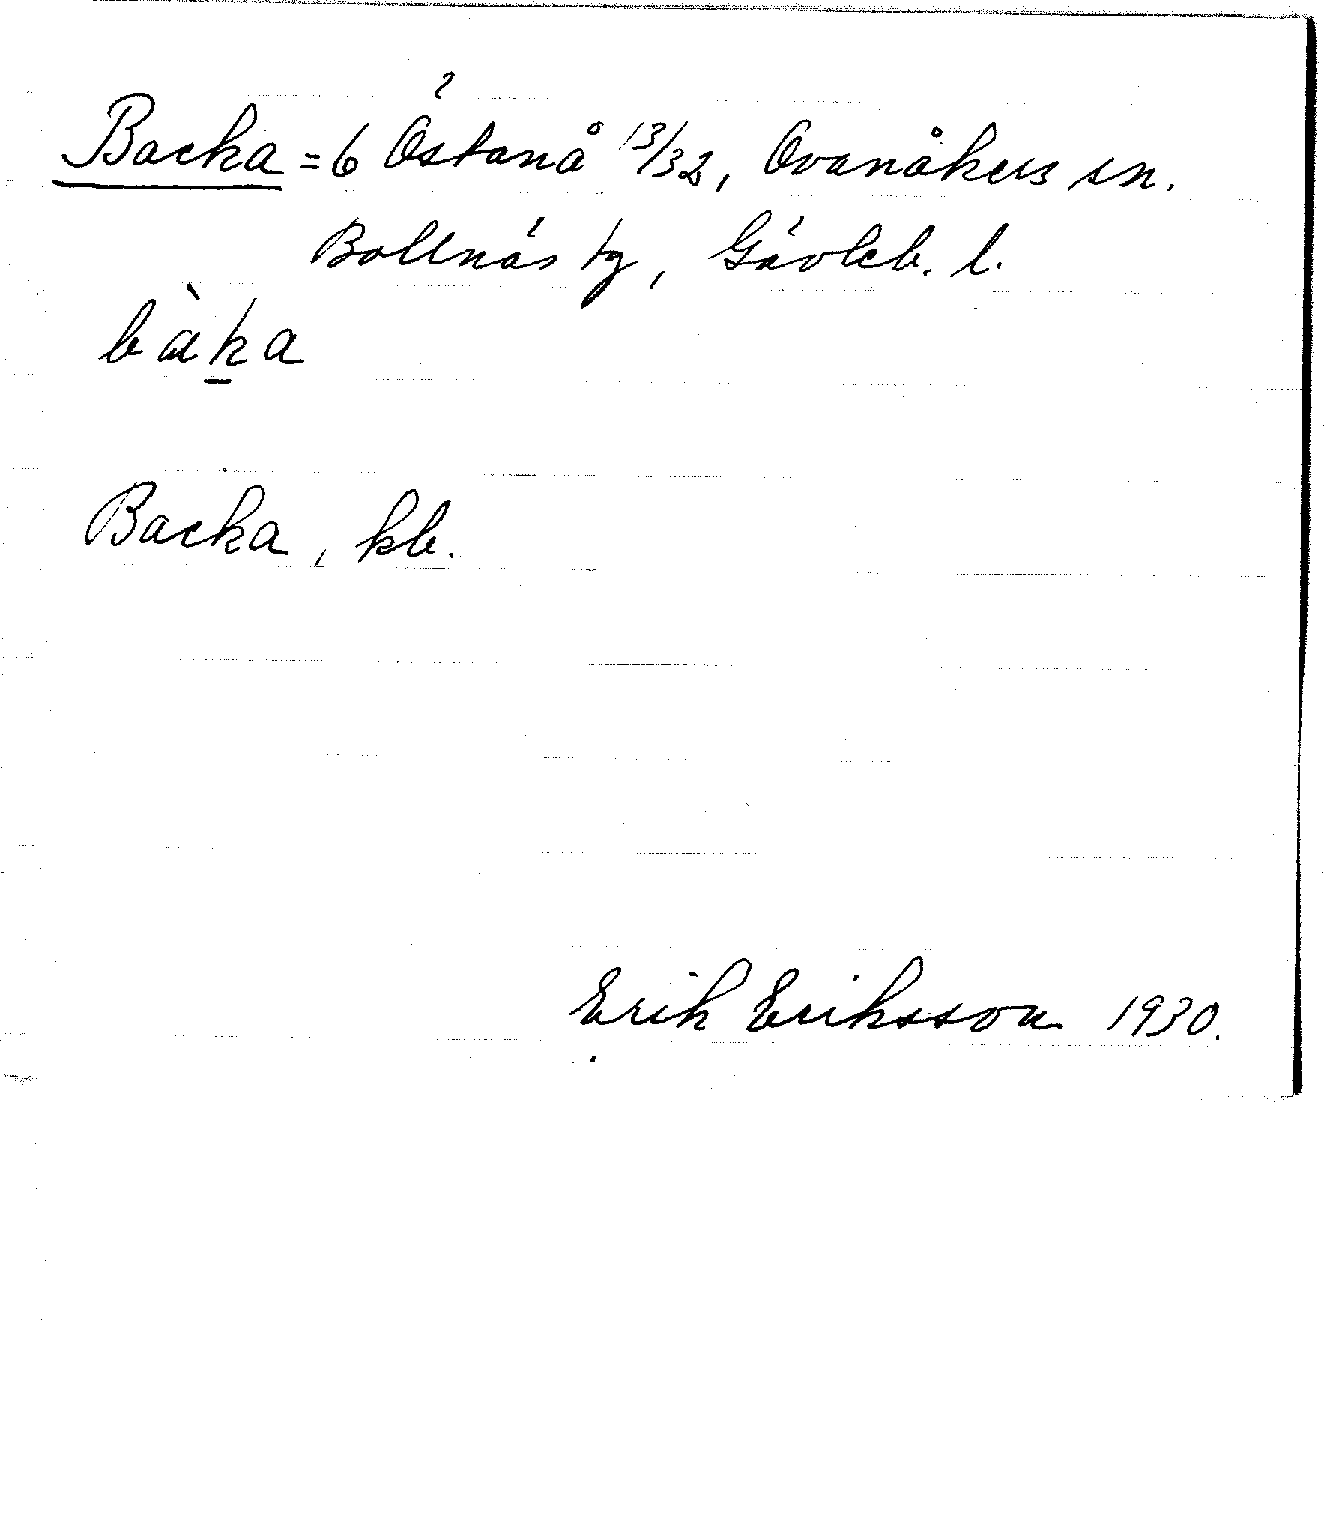 Backa = 6 Östanå 13/32, Ovanåkers sn.
Bollnäs tg, Gävleb. l.
bàka
Backa, kb.
Erik Eriksson 1930.